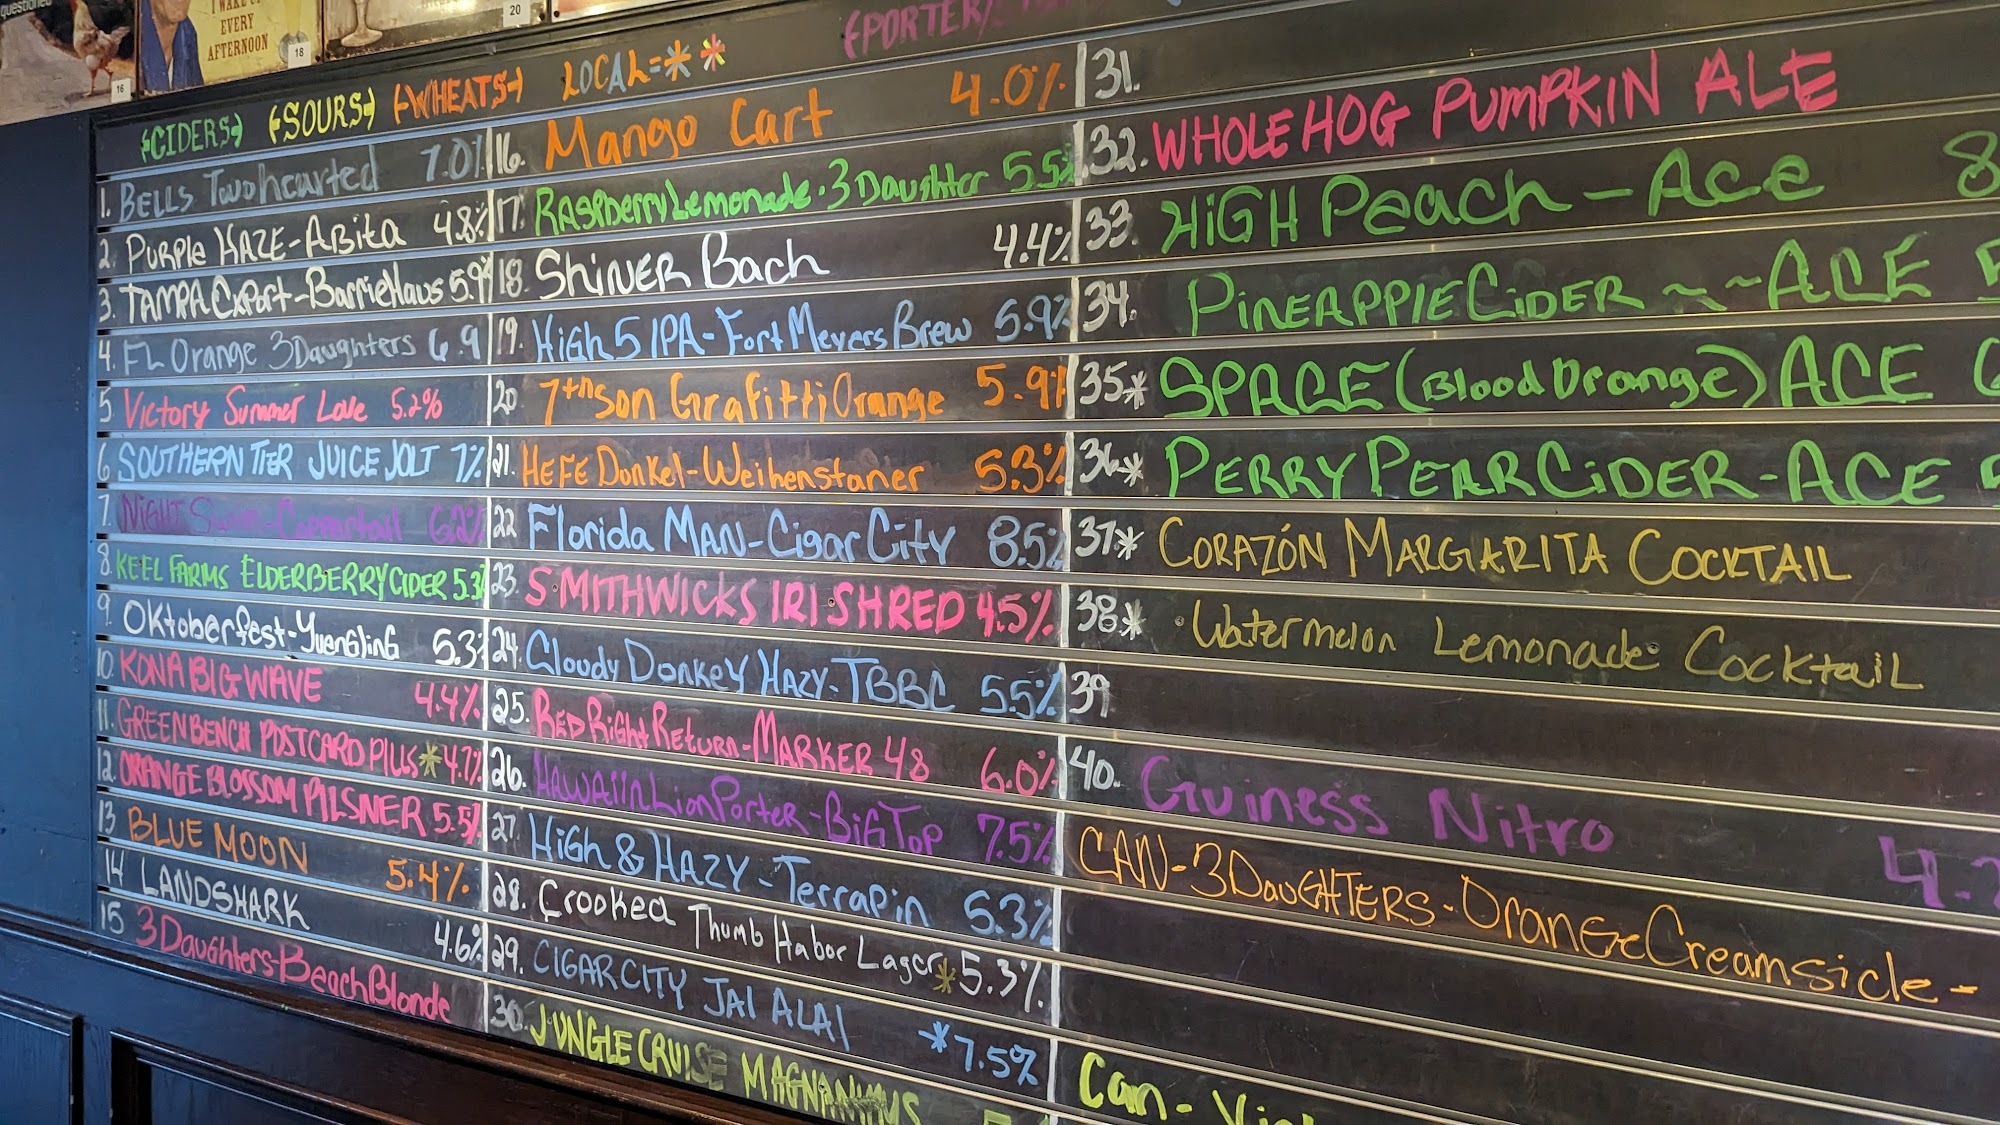 EVERY
AFTERNOON
16
18
20
{CIDERS} {SOURS} {WHEATS} LOCAL=**
{PORTER/
1. BELLS Twohearted 7.0%
2. PURPLE HAZE-ABita 4.8%
3. TAMPA CxPort-BarrieHaus 5.9%
4. FL Orange 3Daughters 6.9
5 Victory Summer Love 5.2%
6 SOUTHERN TIER JUICE JOLT 7%
7. NIGHT Swim-Coppertail 6.2%
8. KEEL FARMS ELDERBERRY CIDER 5.3
9. OKtoberfest-Yuengling 5.3%
10. KONA BIG WAVE 4.4%
11. GREEN BENCH POSTCARD PILLS* 4.7%
12. ORANGE BLOSSOM PILSNER 5.5%
13 BLUE MOON 5.4%
14 LANDSHARK 4.6%
15 3Daughters-BeachBlonde
16. Mango Cart 4.0%
17. RASPberry Lemonade-3Daughter 5.5%
18 ShiNER Bach 4.4%
19. HiGH 5 IPA-Fort Meyers Brew 5.9%
20 7th Son Grafitti Orange 5.9%
21. HEFE Donkel-Weihenstaner 5.3%
22 Florida MAN-Cigar City 8.5%
23. SMITHWICKS IRISH RED 4.5%
24. Cloudy DonKeY HAZY-TBBC 5.5%
25. RED RiGht Return-MARKER 48 6.0%
26. HAWAIIN Lion Porter-BiG Top 7.5%
27. HiGh & HAZY-Terrapin 5.3%
28. Crooked Thumb Habor Lager* 5.3%
29. CIGAR CITY JAI ALAI *7.5%
30. JUNGLE CRUISE MAGNANIMUS
31.
32. WHOLE HOG PUMPKIN ALE
33. HiGH Peach-Ace 8
34. PiNEAPPlE CiDER ~~ACE 5
35* SPACE (Blood Orange) ACE 6
36* PERRY PEAR CiDER-ACE 5
37* CORAZÓN MARGARITA COCKTAIL
38* Watermelon Lemonade Cocktail
39
40. Guiness Nitro 4.2
CAN-3DauGHTERS-OranGe Creamsicle-
Can-